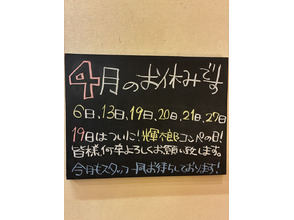 4月のお休みです
6日、13日、19日、20日、21日、29日
19日はついに!輝太郎コンペの日!
皆様何卒よろしくお願い致します。
今月もスタッフ一同お待ちしております!